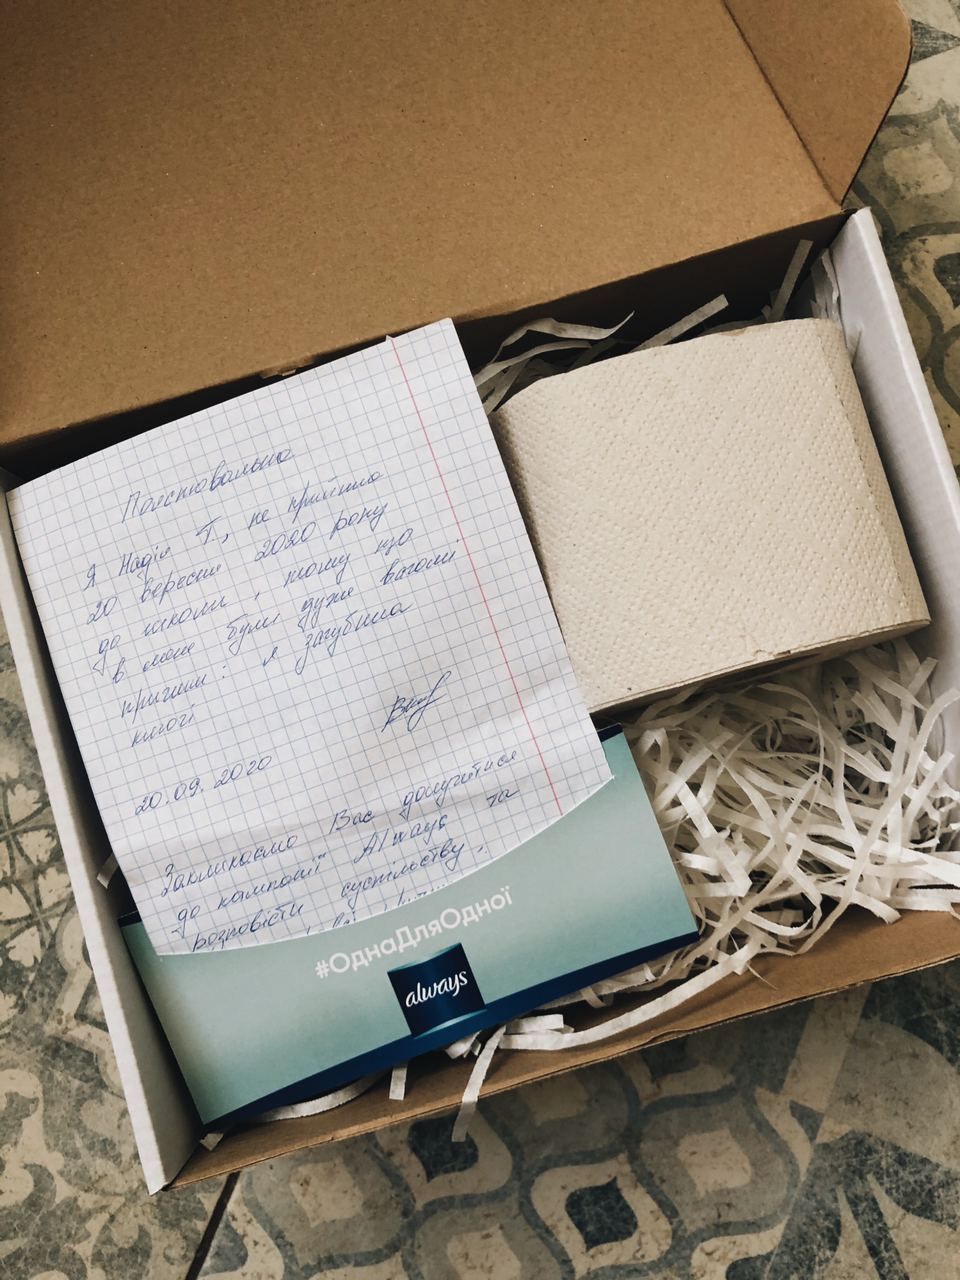 Пояснювальна
Я Надія Т, не прийшла
20 вересня 2020 року
до школи, тому що
в мене були дуже вагомі
причини: я загубила
ключі
20.09.2020
Закликаємо Вас долучитися
до кампанії Always та
розповісти суспільству,
#ОднаДляОдної
always